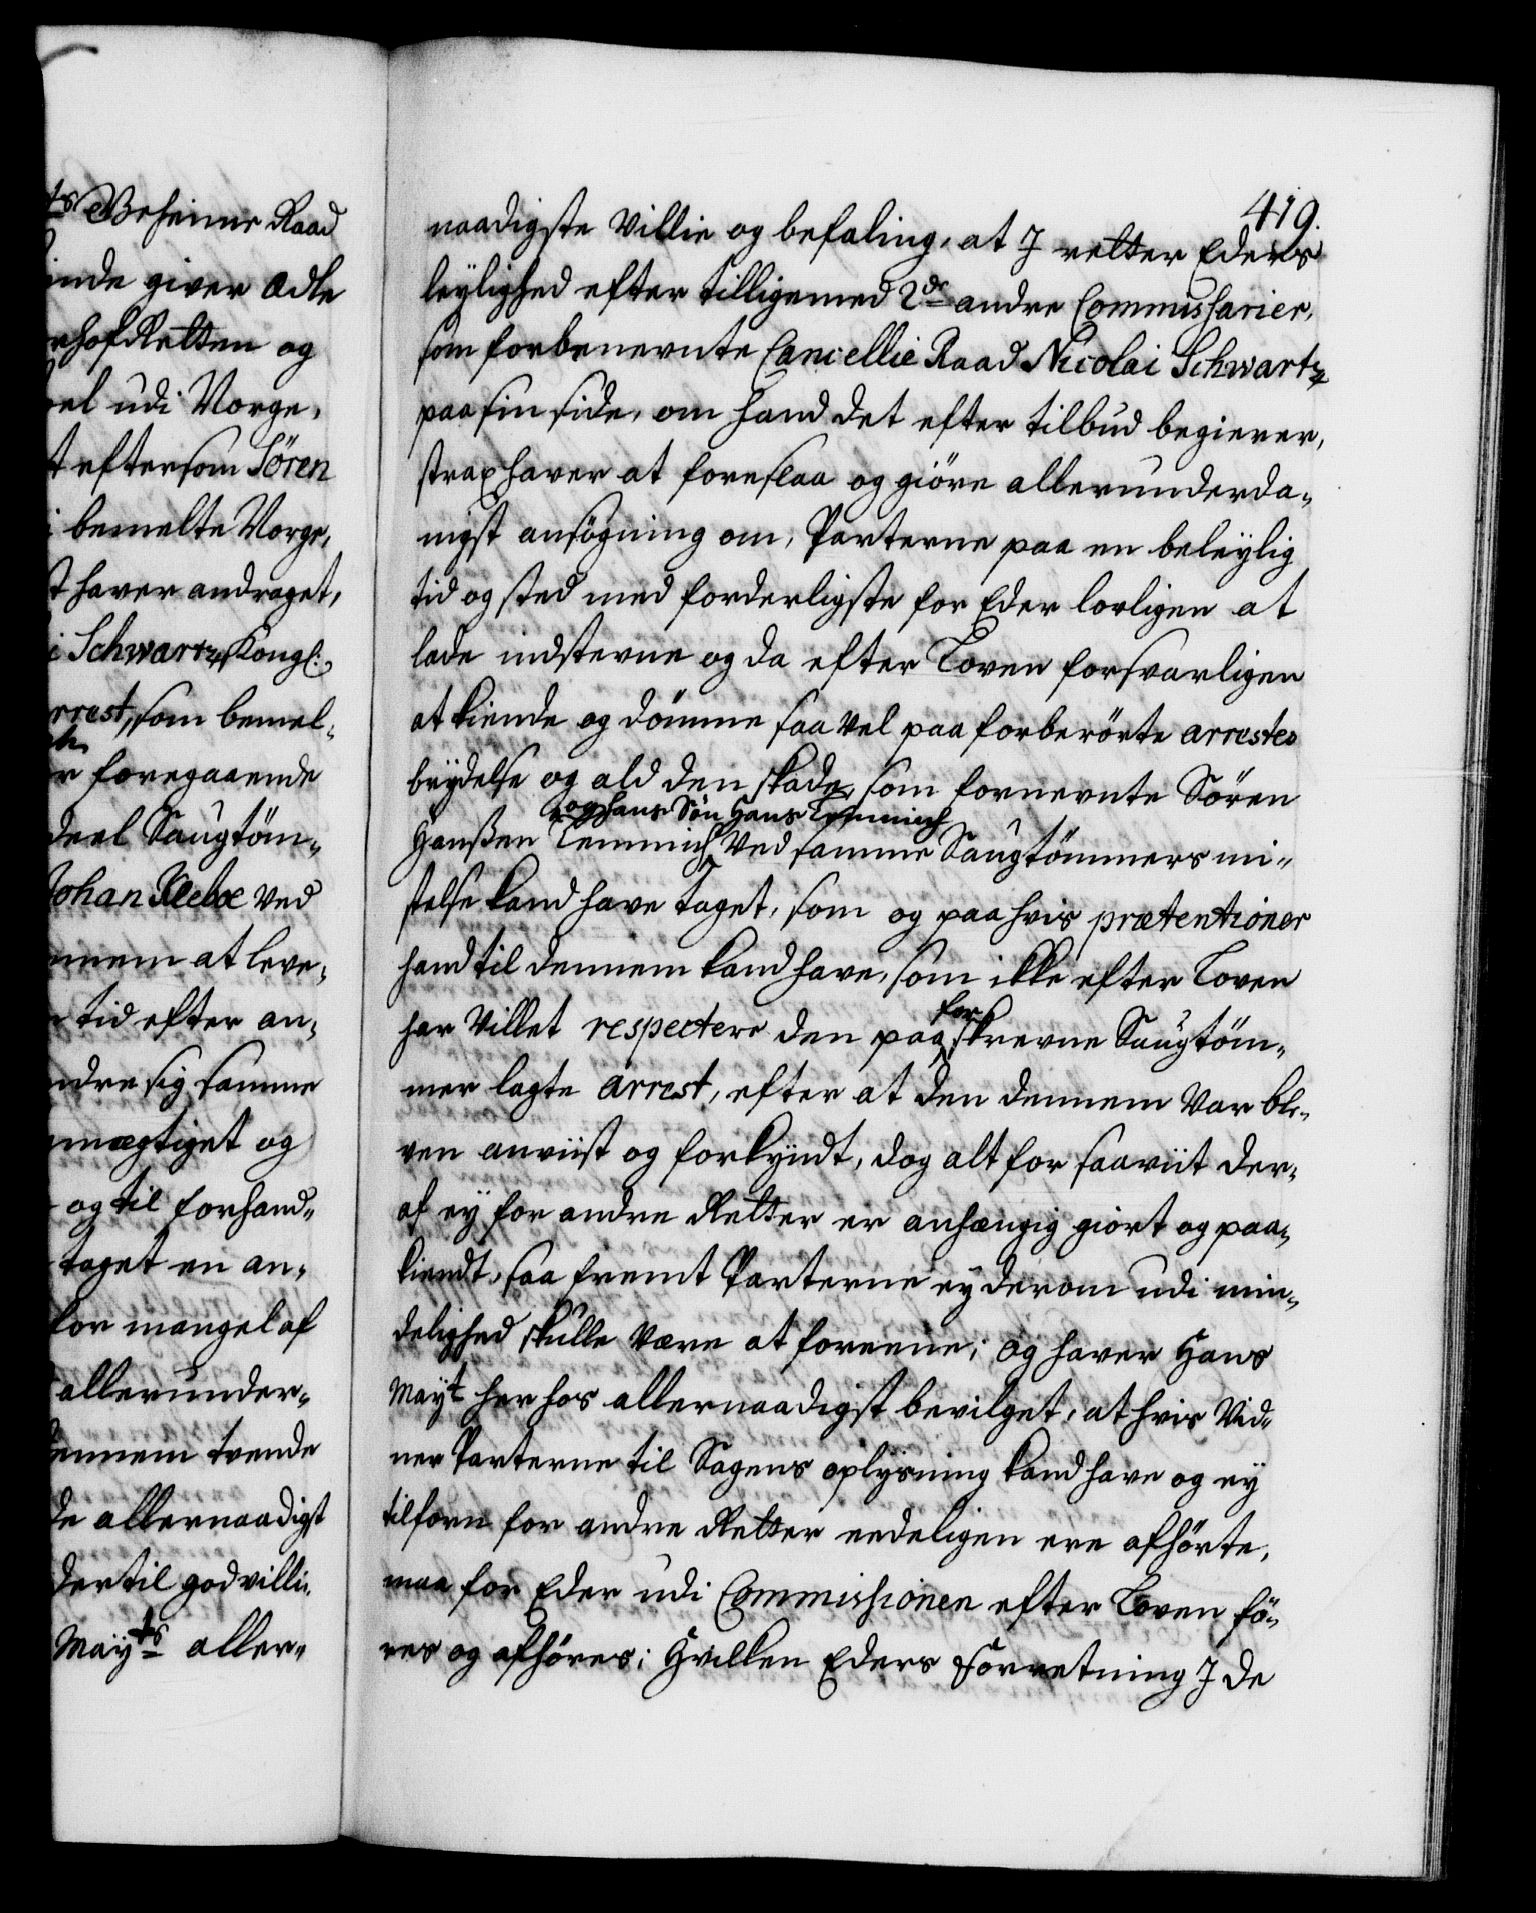 ts Geheime Raad
inde giver Adle
rhofRetten og
el udi Norge,
t eftersom Sören
i bemelte Norge,
st haver andraget,
i Schwartz Kongl:
rrest, som bemel-
r foregaaende
deel Saugtöm-
Johan Kleboe ved
nnem at leve-
tid efter an-
ndre sig samme
mægtiget og
og til forhand-
taget en an-
for mangel af
allerunder-
ennem tvende
de allernaadigst
dertil godvilli-
Mayts aller-
419.
naadigste Villie og befaling, at I retter Eders
leylighed efter tilligemed 2de andre Commissarier,
som forbenevnte Cancellie Raad Nicolai Schwartz
paa sin side, om hand det efter tilbud begierer,
strax haver at foreslaa og giöre allerunderda-
nigst ansögning om, Parterne paa en beleylig
tid og sted med forderligste for Eder lovligen at
lade indstevne og da efter Loven forsvarligen
at kiende og dömme saa vel paa forberörte arrestes
brydelse og ald den skade, som fornevnte Sören
og hans Sön Hans Lemmich
Hanßen Lemmich ved samme Saugtömmers mi-
stelse kand have taget, som og paa hvis prætentioner
hand til dennem kand have, som ikke efter Loven
har Villet respectere den paa forskrevne Saugtöm-
mer lagte arrest, efter at den dennem var ble-
ven anviist og forkyndt, dog alt for saaviit der-
af ey for andre Retter er anhængig giort og paa-
kiendt, saa fremt Parterne ey derom udi min-
delighed skulle være at foreene; og haver Hans
Mayt her hos allernaadigst bevilget, at hvis Vid-
ner Parterne til Sagens oplysning kand have og ey
tilforn for andre Retter eedeligen ere afhörte,
maa for Eder udi Commissionen efter Loven fö-
res og afhöres; Hvilken Eders Forretning I de